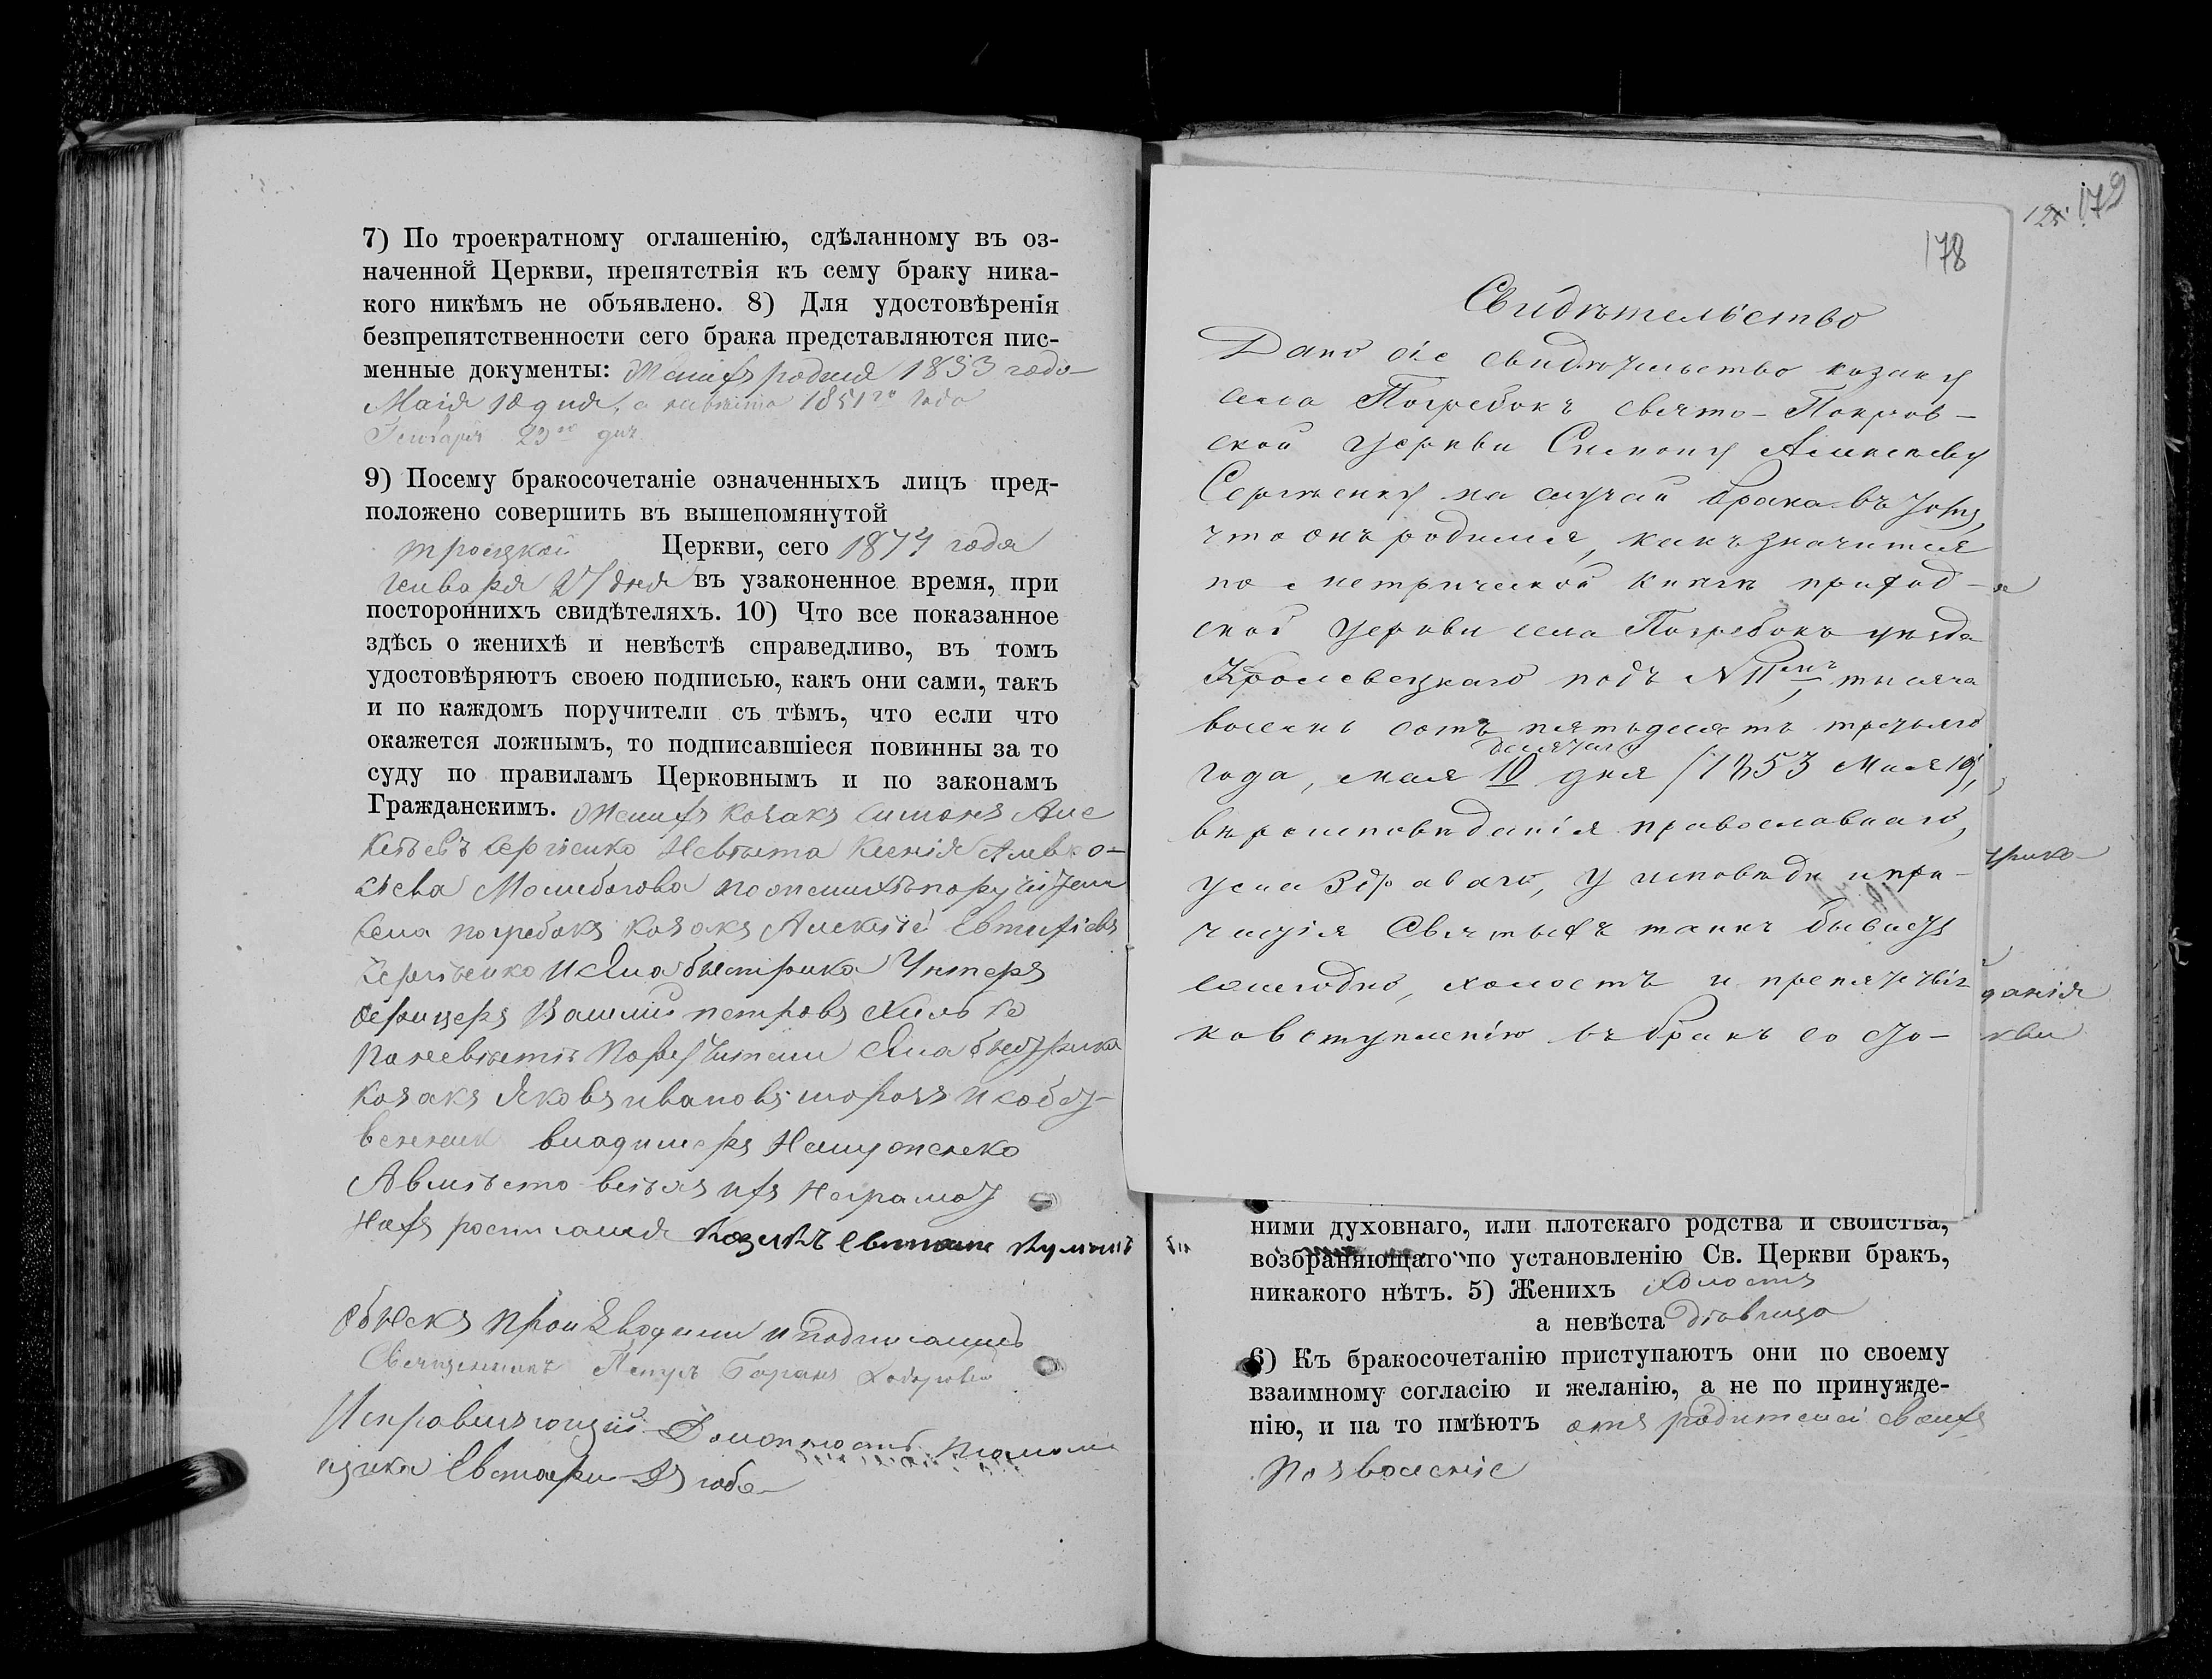 7) По троекратному оглашенію, сдѣланному въ оз-
наченной Церкви, препятствія къ сему браку ника-
кого никѣмъ не объявлено. 8) Для удостовѣренія
безпрепятственности сего брака представляются пис-
менные документы: Женихъ родился 1853 года
Маія 10 дня, а невѣста 1851го года
Генваря 23го дня
9) Посему бракосочетаніе означенныхъ лицъ пред-
положено совершить въ вышепомянутой
троицкой Церкви, сего 1874 года
генваря 27 дня въ узаконенное время, при
постороннихъ свидѣтеляхъ. 10) Что все показанное
здѣсь о женихѣ и невѣстѣ справедливо, въ томъ
удостовѣряютъ своею подписью, какъ они сами, такъ
и по каждомъ поручители съ тѣмъ, что если что
окажется ложнымъ, то подписавшіеся повинны за то
суду по правиламъ Церковнымъ и по законамъ
Гражданскимъ. Женихъ козакъ Симонъ Але
ксѣевъ Сергѣенко Невѣста Ксенія
по женихѣ поручители
села погребокъ козакъ Алексѣй Евтифіевъ
Сергѣенко и села быстрика Унтеръ
офицеръ Василій петровъ
по невѣстѣ Поручители села быстрика
козакъ Яковъ ивановъ и собст
венникъ владимеръ
А вмѣсто всѣхъ ихъ неграмот
ныхъ росписался козакъ
обыскъ производили и подписались
Священникъ
Исправляющій Должность
щика Евстафи
12. 179
178
Свидѣтельство
Дано сіе свидѣтельство козаку
села Погребокъ свято-Покров-
ской церкви Симону Алексѣеву
Сергѣенку на случай брака въ томъ,
что онъ родился, какъ значится
по метрической книгѣ приход-
ской церкви села Погребокъ уѣзда
Кролевецкаго подъ № 11емъ, тысяча
восемь сотъ пятьдесятъ третьяго
десятаго
года, мая 10 дня /1853 Мая 10/,
вѣроисповѣданія православнаго,
ума здраваго, у исповѣди и при-
частія Святыхъ таинъ бываетъ
ежегодно, холостъ и препятствія
ко вступленію въ бракъ со сто-
данія
кви
ними духовнаго, или плотскаго родства и свойства,
возбраняющаго по установленію Св. Церкви бракъ,
никакого нѣтъ. 5) Женихъ холостъ
а невѣста дѣвица
6) Къ бракосочетанію приступаютъ они по своему
взаимному согласію и желанію, а не по принужде-
нію, и на то имѣютъ отъ родителей своихъ
позволеніе